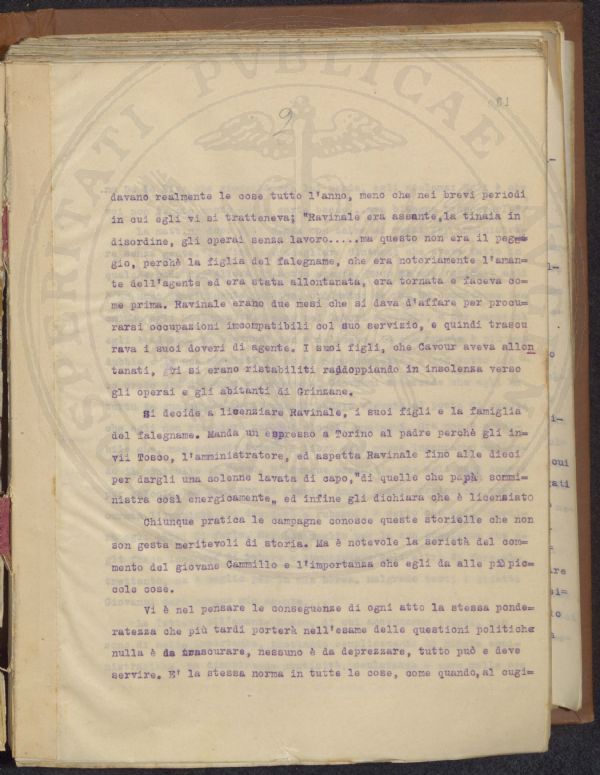 PROSPERITATI PVBLICAE AVG
61
9
davano realmente le cose tutto l'anno, meno che nei brevi periodi
in cui egli vi si tratteneva; "Ravinale era assente,la tinaia in
disordine, gli operai senza lavoro.....ma questo non era il peg=
gio, perchè la figlia del falegname, che era noteriamente l'aman=
te dell'agente ed era stata allontanata, era tornata e faceva co=
me prima. Ravinale erano due mesi che si dava d'affare per procu=
rarsi occupazioni imcompatibili col suo servizio, e quindi trascu
rava i suoi doveri di agente. I suoi figli, che Cavour aveva allon
tanati, vi si erano ristabiliti raddoppiando in insolenza verso
gli operai e gli abitanti di Grinzane.
Si decide a licenziare Ravinale, i suoi figli e la famiglia
del falegname. Manda un espresso a Torino al padre perchè gli in=
vii Tosco, l'amministratore, ed aspetta Ravinale fino alle dieci
per dargli una solenne lavata di capo,"di quelle che papà sommi=
nistra così energicamente" ed infine gli dichiara che è licenziato
Chiunque pratica le campagne conosce queste storielle che non
son gesta meritevoli di storia. Ma è notevole la serietà del com=
mento del giovane Cammillo e l'importanza che egli da alle più pic=
cole cose.
Vi è nel pensare le conseguenze di ogni atto la stessa ponde=
ratezza che più tardi porterà nell'esame delle questioni politiche
nulla è da trascurare, nessuno è da deprezzare, tutto può e deve
servire. E' la stessa norma in tutte le cose, come quando,al cugi=